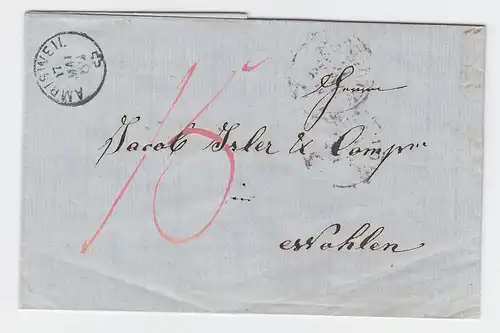 AMRISWEIL
17
MAI
15
Herrn
Jacob Isler & Comp
in
Wohlen